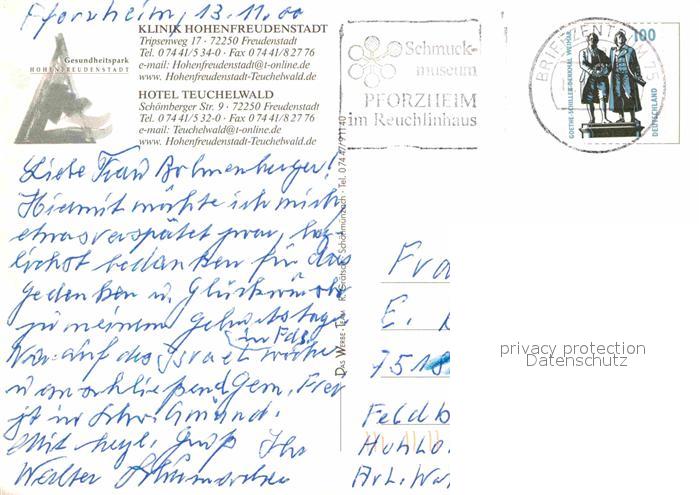 Pforzheim, 13.11.00
KLINIK HOHENFREUDENSTADT
Tripsenweg 17 · 72250 Freudenstadt
Tel. 0 74 41/5 34-0 · Fax 0 74 41/8 27 76
e-mail: Hohenfreudenstadt@t-online.de
www. Hohenfreudenstadt-Teuchelwald.de
Gesundheitspark
HOHENFREUDENSTADT
HOTEL TEUCHELWALD
Schömberger Str. 9 · 72250 Freudenstadt
Tel. 0 74 41/5 32-0 · Fax 0 74 41/8 27 76
e-mail: Teuchelwald@t-online.de
www. Hohenfreudenstadt-Teuchelwald.de
Liebe Frau
Hiermit möchte ich mich
etwas verspätet zwar, herz
lichst bedanken für das
Gedenken u Glückwünsche
zu meinem Geburtstage
in Fds.
War auf der Israel
u anschließend Gem. Frei
zt in
Mit herzl. Gruß Ihr
Walter
DAS WERBE-TEAM · R. Grätsch · Schönmünzach · Tel. 0 74 47/9 11 40
Schmuck-
museum
PFORZHEIM
im Reuchlinhaus
BRIEFZENTRUM 75
100
GOETHE-SCHILLER-DENKMAL WEIMAR
DEUTSCHLAND
Fra
E.
7518
Feldb
privacy protection
Datenschutz